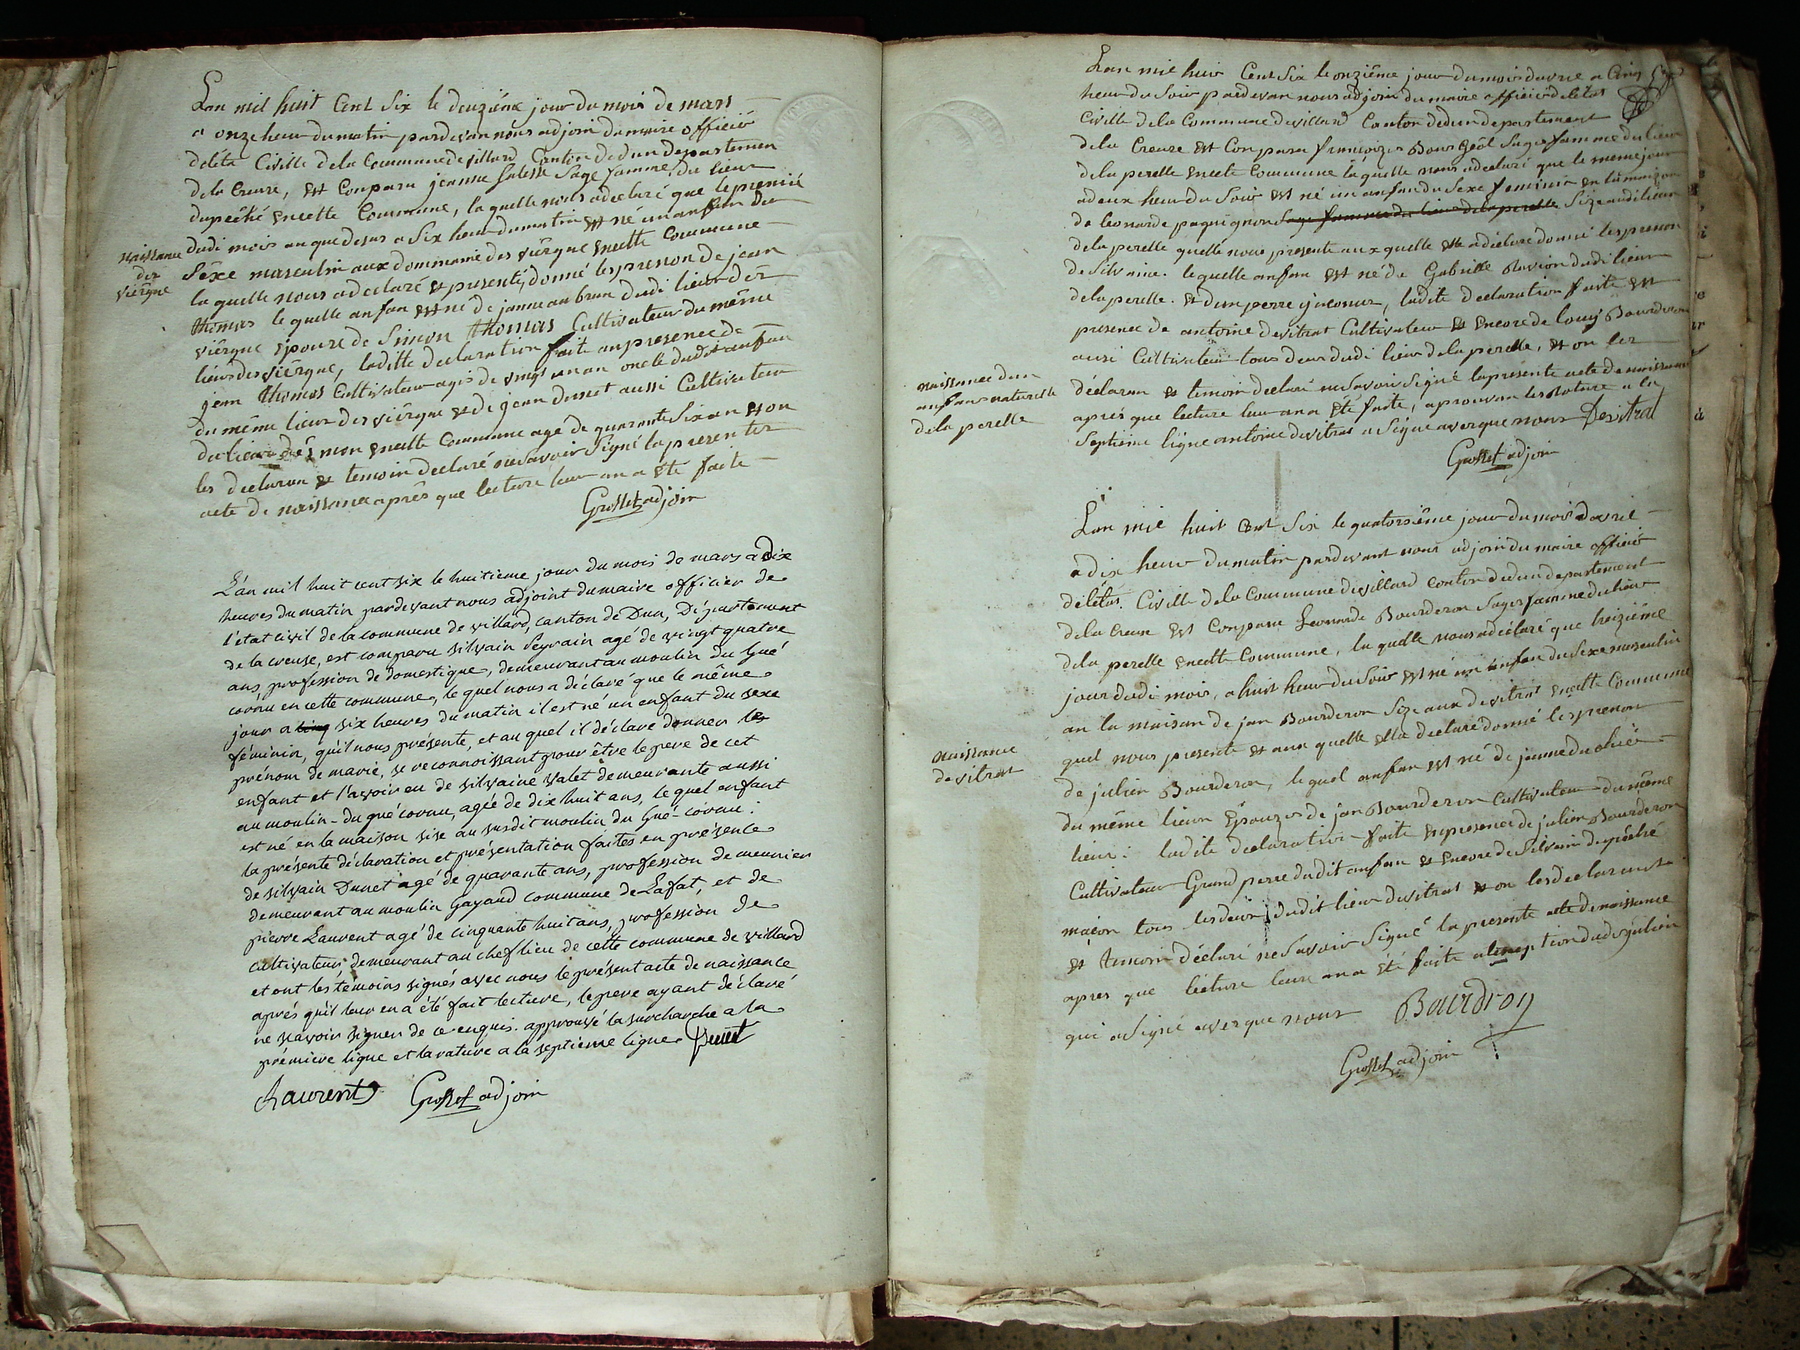 Lan mil huit Cent Six le deuziéme jour du mois de mars
a onze heur du matin pardevan nous adjoin du maire officié
deléta Civille dela Commune de villard Canton dedun departemen
dela Creuse, Est Conparu jeanne Sage famme du lieur
dupêché encette Commune, laquelle nous adeclaré que le premié
dudi mois an que desus a Six heur dumatin est né un anfan du
naissance
des
viêrgne
Séxe masculin aux dommaine des viêrgne encette commune
laquelle nous adeclaré et presenté, donné les prenon de jean
thomas lequelle anfan est né de janne aubrun dudi lieur des
viêrgne epouze de Simon Thomas Cultivateur du même
lieur des viêrgne, laditte declaration faite anpresence de
jean Thomas Cultivateur agés de vingt un an oncle dudit anfan
du même lieur des viêrgne et di jean dunet aussi Cultivateur
du lieur encette Commune age de quarante Six an et on
les declaran et temoin declaré ne Savoir Signé la presenter
acte de naissance aprês que lecture leur an a été faite
Grosset adjoin
L'an mil huit cent six le huitieme jour du mois de mars a dix
heures du matin pardevant nous adjoint du maire officier de
l'état civil de la commune de villard, canton de Dun, Département
de la creuse, est comparu silvain Peyrain agé de vingt quatre
ans, profession de domestique, demeurant au moulin du Gué
cornu en cette commune, le quel nous a déclaré que le même
jour a cinq six heures du matin il est né un enfant du sexe
féminin, qu'il nous présente, et au quel il déclare donner le
prénom de marie, se reconnoissant pour être le pere de cet
enfant et l'avoir eu de silvaine valet demeurante aussi
au moulin-du gué cornu, agée de dix huit ans, le quel enfant
est né en la maison sise au susdit moulin du Gué-cornu:
la présente déclaration et présentation faites en présence
de silvain Dunet agé de quarante ans, profession de meunier
demeurant au moulin Gayaud commune de Lafat, et de
pierre Laurent agé de cinquante huit ans, profession de
cultivateur demeurant au chef lieu de cette commune de villard
et ont les témoins signés avec nous le présent acte de naissance
après qu'il leur en a été fait lecture, le pere ayant déclaré
ne sçavoir signer de ce enquis. approuvé la surcharche a la
prémiere ligne et la rature a la septieme ligne. Dunet
Laurent Grosset adjoin
Lan mil huis Cent Six le onziéme jour du mois davril a Cinq
heur du Soir pardevan nous adjoin du maire officié deletat
Civille dela Commune devillard Canton dedun departement
dela Creuze est Conparu françoize Bourgeol Sage famme du lieur
dela perelle encete Commune laquelle nous adeclaré que le meme jour
adeux heur du Soir est né un anfan du Sexe feminin en lamaizon
de leonarde pagnignon Sage famme du lieur dela perelle Size audi lieur
dela perelle quelle nous presente aux quelle elle adéclare donné les prenon
de Silvaine. lequelle anfan est né de Gabrielle dudi lieur
dela perelle. et dun perre ynconnu, ladite declaration faite est
presence de antoine devitrat Cultivateur et encore de louis Bourderon
ausi Cultivateur tous deux dudi lieur dela perelle, et on les
naissance dun
anfans naturelle
dela perelle
déclaran et temoin declaré ne Savoir Signé lapresente acte de naissance
après que lecture leur an a été faite, aprouvan la rature a la
Septieme ligne antoine devitrat a Signé avec que nous Devitrat
Grosset adjoin
Lan mil huit Cent Six le quatorsiême jour du mois davril
a dix heur du matin pardevant nous adjoin du maire officié
délétat. Civille dela Commune devillard Canton dedun departement
dela Creuse est Conparu Leonarde Bourderon Sage famme du lieur
dela perelle encette Commune, la quelle nous adéclaré que treiziéme
jour dudi mois, a huit heur du Soir est né un anfan du Sexe masculin
an la maison de jan Bourderon Size aux devitrat encette Commune
quel nous presente et aux quelle ella declaré donné les prenon
naissance
devitrat
de julien Bourderon, le quel anfan est né de janne
du même lieur Epouze de jan Bourderon Cultivateur du même
lieur: ladite declaration faite en presence de julien Bourderon
Cultivateur Grand perre dudit anfan et encore de Silvain dupêché
maçon tous lesdeux dudit lieur devitrat et on les declaran
et temoin déclaré ne Savoir Signé la presente acte de naissance
apres que lecture leur an a été faite alexception dudi julien
qui a Signé avec que nous Bourdron
Grosset adjoin